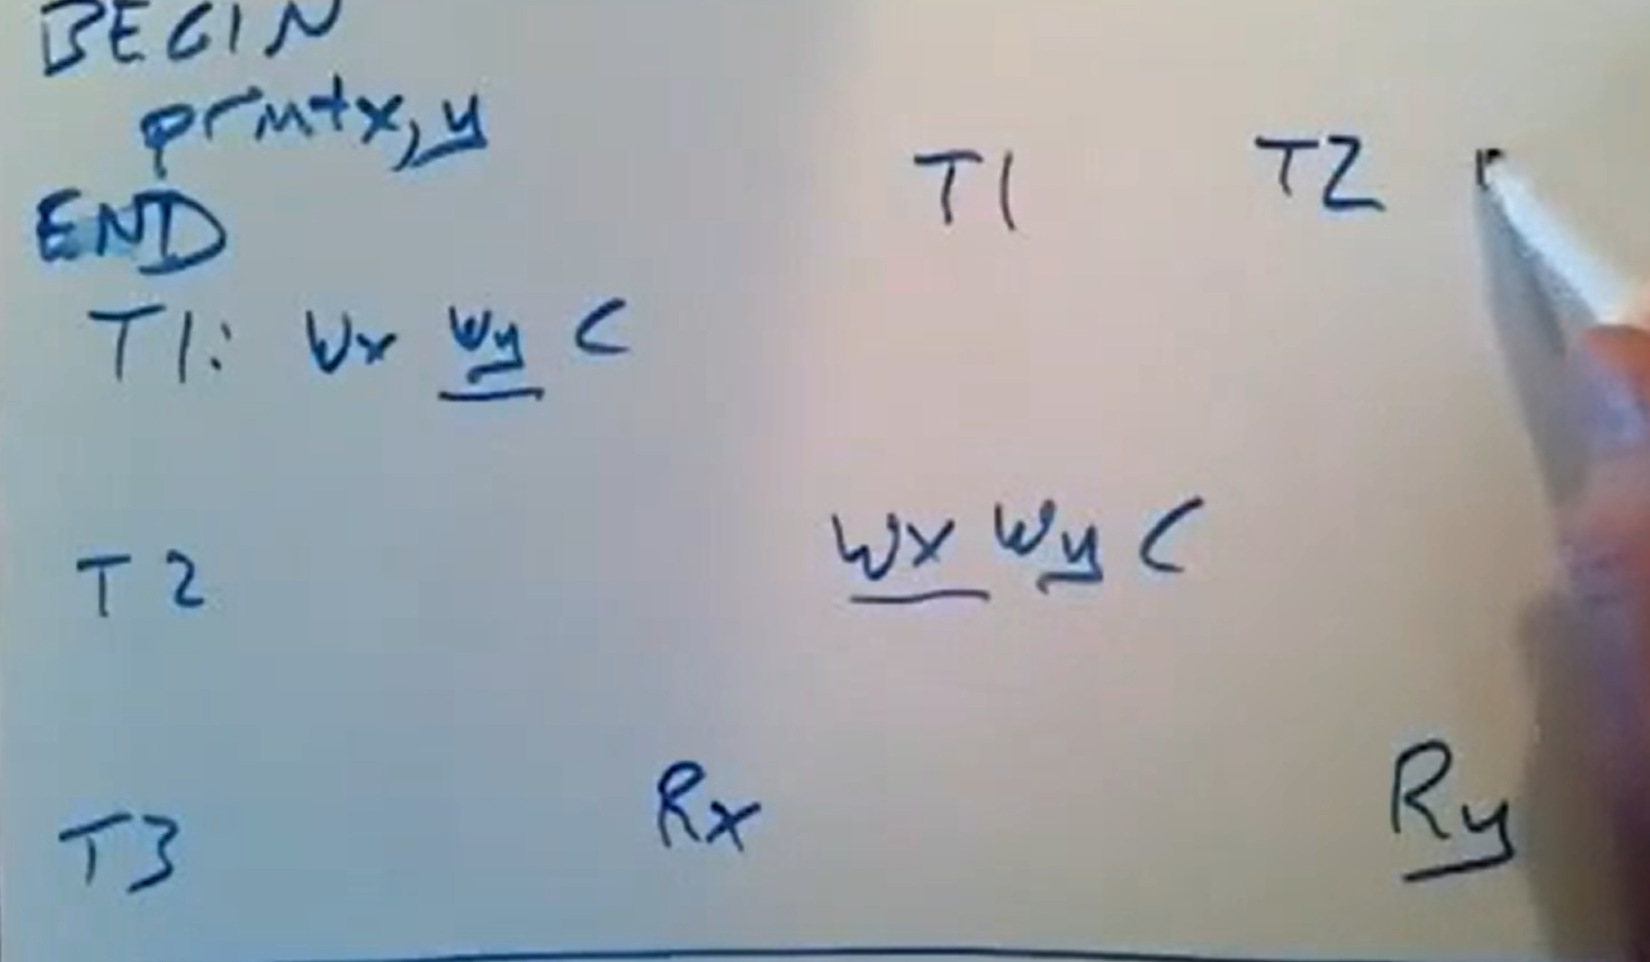 BEGIN
print x, y
END
T1 T2
T1: Wx Wy C
T2 Wx Wy C
T3 Rx Ry